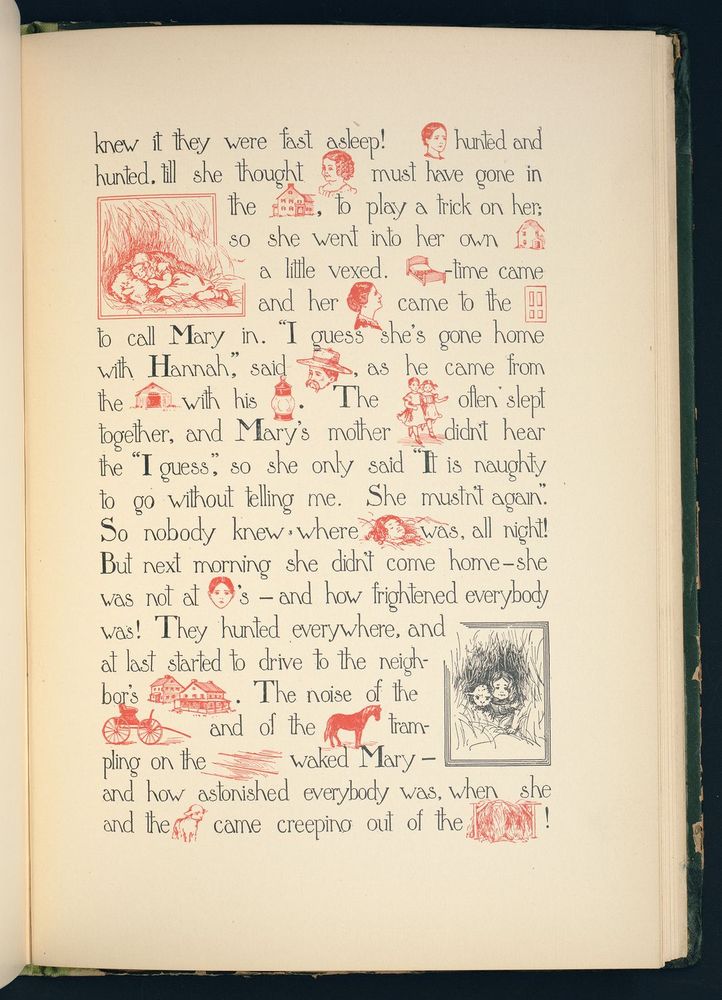 knew it they were fast asleep! hunted and
hunted, till she thought must have gone in
the , to play a trick on her;
so she went into her own
a little vexed. -time came
and her came to the
to call Mary in. "I guess she's gone home
with Hannah," said , as he came from
the with his . The often slept
together, and Mary's mother didn't hear
the "I guess", so she only said "It is naughty
to go without telling me. She mustn't again".
So nobody knew where was, all night!
But next morning she didn't come home—she
was not at 's — and how frightened everybody
was! They hunted everywhere, and
at last started to drive to the neigh-
bor's . The noise of the
and of the tram-
pling on the waked Mary —
and how astonished everybody was, when she
and the came creeping out of the !